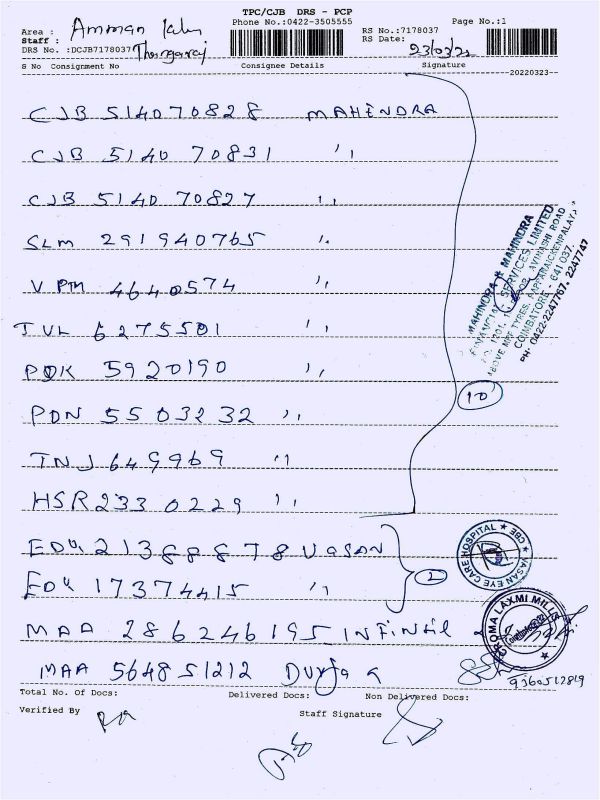 TPC/CJB DRS - PCP
Area : Amman
Phone No.:0422-3505555
RS No.:7178037
Page No.:1
Staff : Thangaraj
RS Date: 23/03/22
DRS No. :DCJB7178037
S No Consignment No Consignee Details Signature
20220323
CJB 514070828 MAHENDRA
CJB 5140 70831 ''
CJB 5140 70827 ''
SLM 291940765 ''
VPM 4640574 ''
TVL 6275501 ''
PDK 5920190 ''
PDN 5503232 ''
TNJ 649969 ''
HSR 2330229 ''
10
ED 21388878 VASAN
ED 17374415 ''
2
MAA 286246195
MAA 564851212 Durga
9360512819
MAHINDRA & MAHINDRA
FINANCIAL SERVICES LIMITED
AVINASHI ROAD
ABOVE MRF TYRES, PAPPANAICKENPALAYAM
COIMBATORE - 641 037.
PH: 0422-2247767, 2247747
VASAN EYE CARE HOSPITAL ★ CBE ★
LAXMI MILLS
Total No. Of Docs: Delivered Docs: Non Delivered Docs:
Verified By Staff Signature